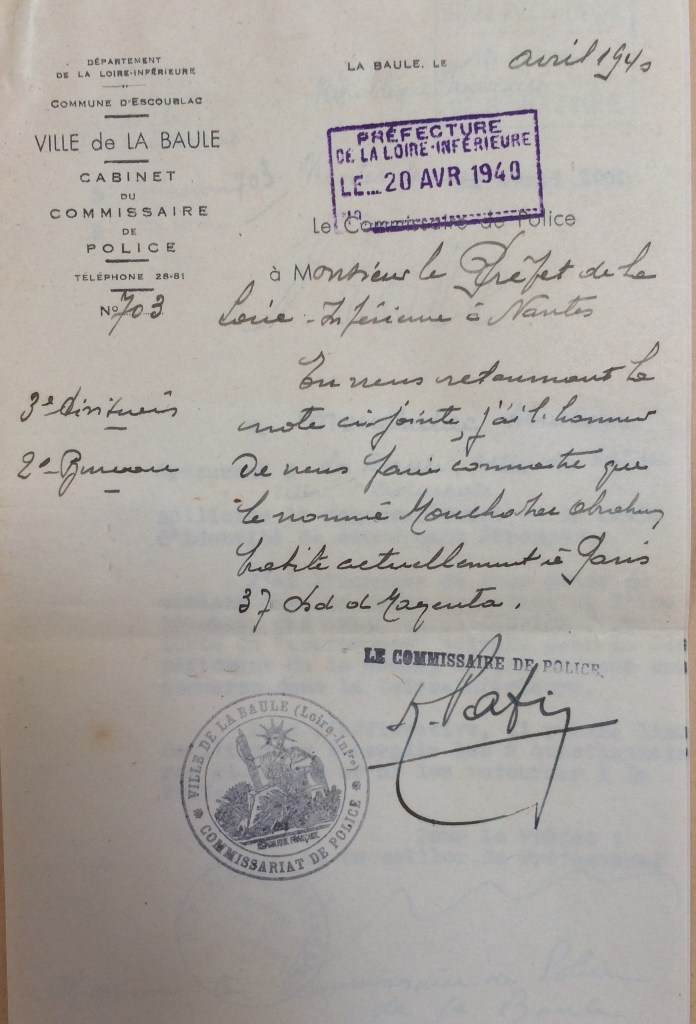 DÉPARTEMENT
DE LA LOIRE-INFÉRIEURE
COMMUNE D'ESCOUBLAC
VILLE de LA BAULE
CABINET
DU
COMMISSAIRE
DE
POLICE
TÉLÉPHONE 26-81
N° 703
3e Division
2e Bureau
LA BAULE, LE avril 1940
PRÉFECTURE
DE LA LOIRE-INFÉRIEURE
LE 20 AVR 1940
Le Commissaire de Police
à Monsieur le Préfet de la
Loire-Inférieure à Nantes
En vous retournant la
note ci-jointe, j'ai l'honneur
de vous faire connaître que
le nommé
habite actuellement à Paris
37 Bd de Magenta.
LE COMMISSAIRE DE POLICE,
VILLE DE LA BAULE (Loire-Infre)
COMMISSARIAT DE POLICE